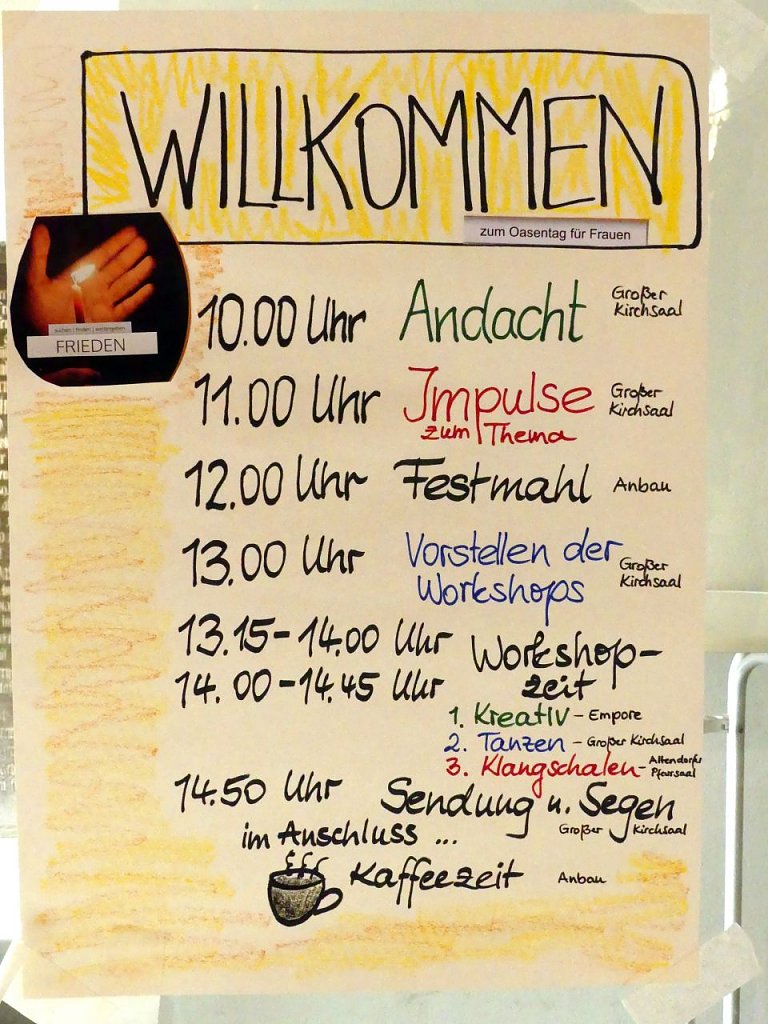 WILLKOMMEN
zum Oasentag für Frauen
suchen | finden | weitergeben
FRIEDEN
10.00 Uhr Andacht Großer
Kirchsaal
11.00 Uhr Impulse Großer
Kirchsaal
zum Thema
12.00 Uhr Festmahl Anbau
13.00 Uhr Vorstellen der
Workshops Großer
Kirchsaal
13.15-14.00 Uhr Workshop-
14.00-14.45 Uhr zeit
1. Kreativ - Empore
2. Tanzen - Großer Kirchsaal
3. Klangschalen -
14.50 Uhr Sendung u. Segen
Großer Kirchsaal
im Anschluss ...
Kaffeezeit Anbau